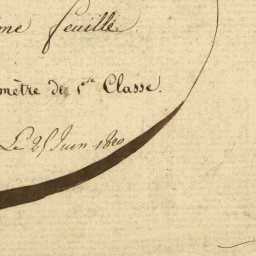 me feuille.
mètre de 1re Classe.
Le 25 Juin 1820